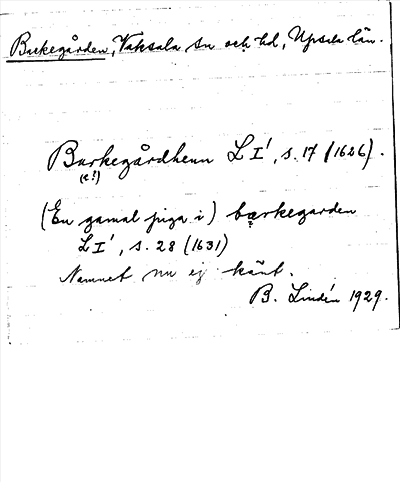 Barkegården, Vaksala sn och hd, Upsala län.
Burkegårdhenn L I¹, s. 17 (1626).
(e!)
(En gamal piga i) barkegarden
L I¹, s. 28 (1631)
Namnet nu ej känt.
B. Lindén 1929.